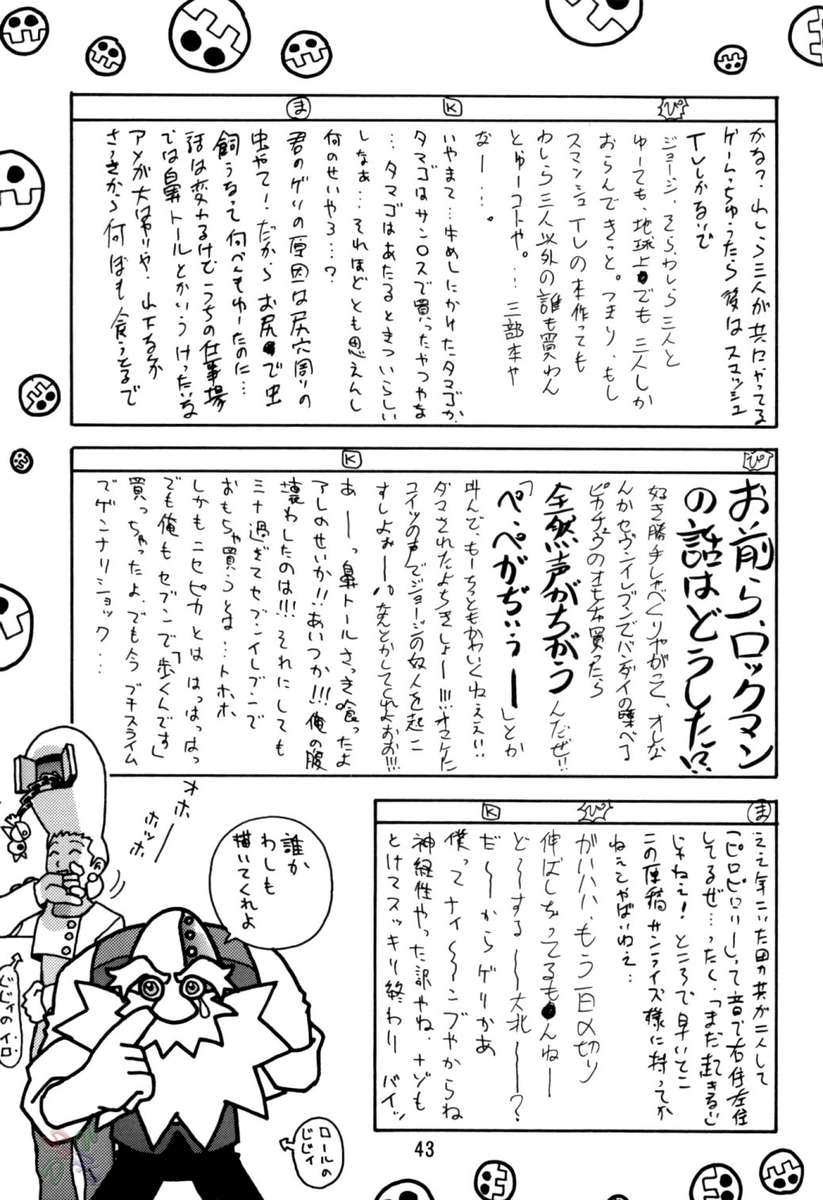 ぴ
K
ま
かな？わしら三人が共にやってる
ゲームっちゅうたら後はスマッシュ
TVしかないで
ジョージ、そらわしら三人と
ゆーても、地球上でも三人しか
おらんできっと。つまり、もし
スマッシュTVの本作っても
わしら三人以外の誰も買わん
とゆーコトや。…三部本や
なー…。
いやまて…牛めしにかけたタマゴか、
タマゴはサンロスで買ったやつやな
…タマゴはあたるときついらしい
しなぁ…それほどとも思えんし
何のせいやろ…？
君のゲリの原因は尻穴周りの
虫やて！だからお尻で虫
飼うなって何べんもゆーたのに…
話は変わるけどうちの仕事場
では鼻トールとかいうけったいな
アメが大はやりや、山下るが
さっきから何ばも食うとるで
ぴ
K
お前ら、ロックマン
の話はどうした!?
好き勝手しゃべくりやがって、オレな
んかセヴンイレブンでバンダイの喋べる
ピカチュウのオモチャ買ったら
全然声がちがう
んだぜ!!
「ぺ、ぺがぢぃぅー」とか
叫んで、もーちっともかわいくねぇえ!!
ダマされたよちきしょー!!!オマケに
コイツの声でジョージの奴人を起こ
すしよぉーパなんとかしてくれよおお!!!
あーっ鼻トールさっき喰ったよ
アレのせいか!!あいつか!!!俺の腹
壊わしたのは!!!それにしても
ミナ過ぎてセブンイレブンで
おもちゃ買うとは…トホホ
しかもニセピカとははっはっはっ
でも俺もセブンで「歩くんです」
買っちゃったよ、でも今プチスライム
でゲンナリショック…
ま
ぴ
K
ええ年こいた田の共が二人して
「ピロピロリーン」って音で右往左往
してるぜ…ったく、「まだ起きるい」
じゃねえ！ところで早いてこ
この原稿サンライズ様に持ってか
ねぇとやばいねぇ…
ガハハハ、もう一日〆切り
伸ばしちってるもんねー
ど～する～大北～？
だ～からゲリかあ
僕ってナイ～ンブやからね
神経性やった訳やね、ナゾも
とけてスッキリ終わり バイッ
オホ
ホッホ
誰か
わしも
描いてくれよ
ジジイのイロ
ロールの
じじィ
43